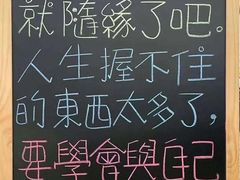 就隨緣了吧。
人生握不住
的東西太多了，
要學會與自己